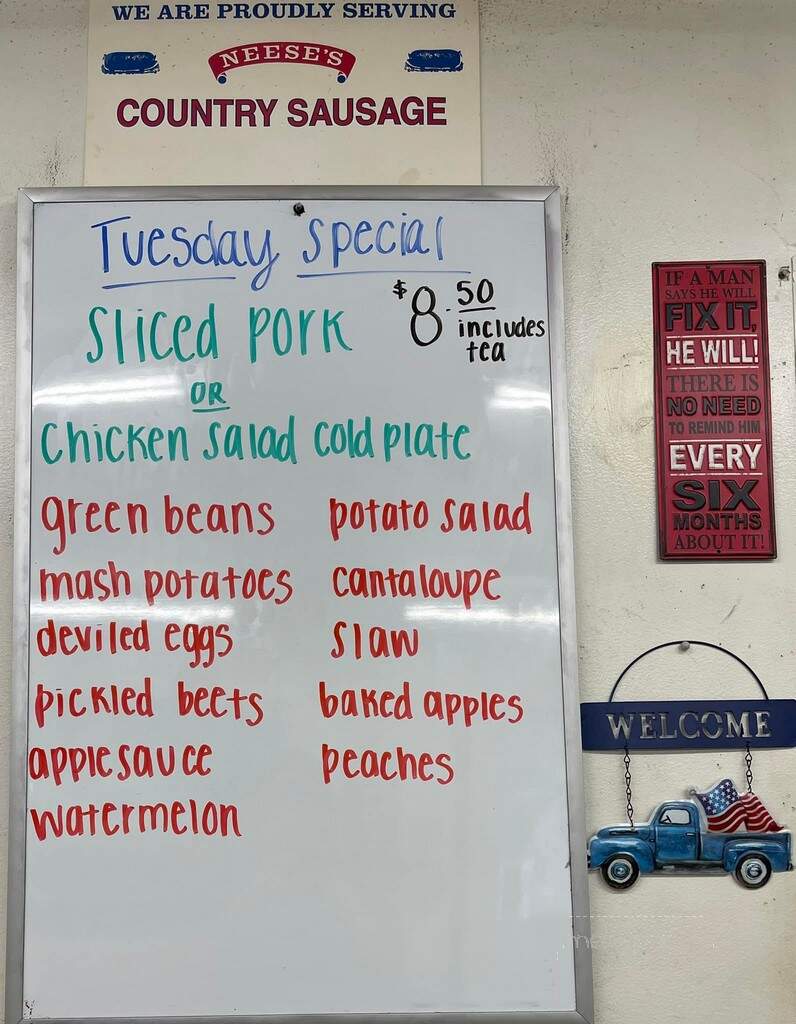 WE ARE PROUDLY SERVING
NEESE'S
COUNTRY SAUSAGE
Tuesday Special
Sliced Pork
$8.50
includes
tea
OR
Chicken Salad Cold plate
green beans
potato salad
mash potatoes
cantaloupe
deviled eggs
slaw
pickled beets
baked apples
applesauce
peaches
watermelon
IF A MAN
SAYS HE WILL
FIX IT,
HE WILL!
THERE IS
NO NEED
TO REMIND HIM
EVERY
SIX
MONTHS
ABOUT IT!
WELCOME